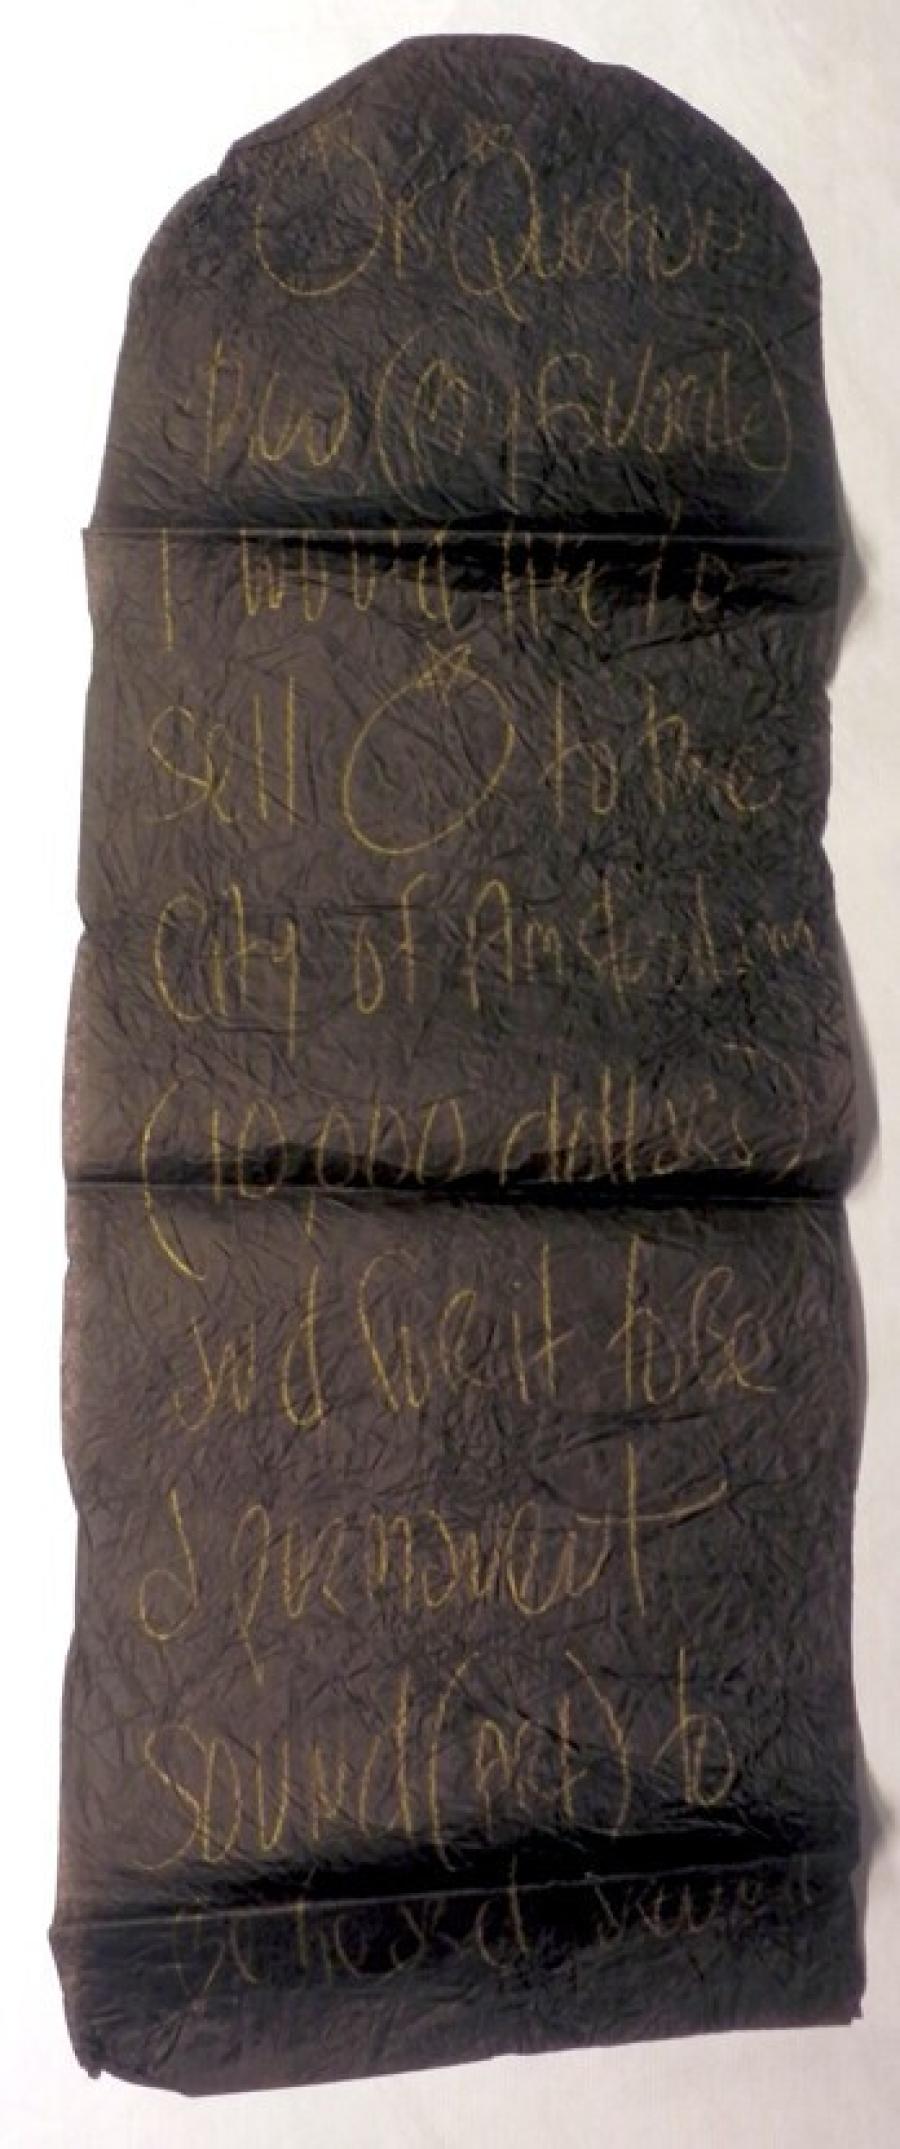 (my favorite)
I would like to
sell to the
City of Amsterdam
(10,000 dollars)
and have it to be
a permanent
sound (art) to
be heard around